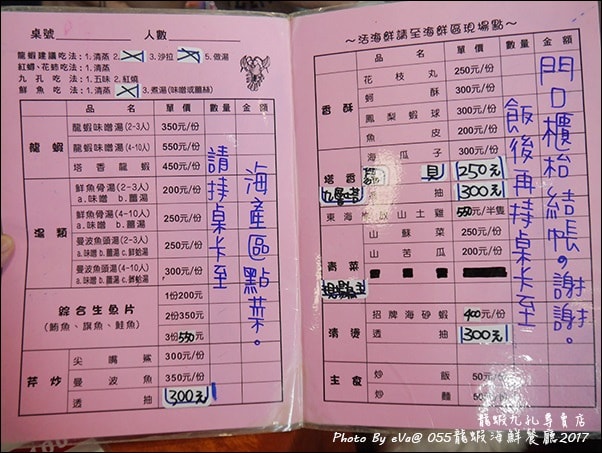 桌號 人數
龍蝦建議吃法：1.清蒸 2. 3.沙拉 5.做湯
紅蟳、花蚵吃法：1.清蒸
九孔吃法：1.五味 2.紅燒
鮮魚吃法：1.清蒸 3.煮湯(味噌或薑絲)
品名 單價 數量 金額
龍蝦
龍蝦味噌湯(2-3人) 350元/份
龍蝦味噌湯(4-10人) 550元/份
塔香龍蝦 450元/份
湯類
鮮魚骨湯(2-3人) 200元/份
a.味噌 b.薑湯
鮮魚骨湯(4-10人) 250元/份
a.味噌 b.薑湯
曼波魚頭湯(2-3人) 250元/份
a.味噌 b.薑湯 c.鮮蛤湯
曼波魚頭湯(4-10人) 300元/份
a.味噌 b.薑湯 c.鮮蛤湯
綜合生魚片
(鮪魚、旗魚、鮭魚)
1份200元
2份350元
3份550元
芹炒
尖嘴鯊 300元/份
曼波魚 350元/份
透抽 300元
請持桌卡至
海產區點菜。
～活海鮮請至海鮮區現場點～
品名 單價 數量 金額
香酥
花枝丸 250元/份
蚵酥 300元/份
鳳梨蝦球 300元/份
魚皮 200元/份
塔香
九層塔
海瓜子 300元/份
貝 250元
抽 300元
東海 放山土雞 550元/半隻
青菜
山蘇菜 250元/份
山苦瓜 200元/份
清燙
招牌海砂蝦 400元/份
透抽 300元
主食
炒飯 50元/份
炒麵 50元/份
飯後再持桌卡至
門口櫃枱結帳。謝謝。
龍蝦九孔專賣店
Photo By eVa@ 055龍蝦海鮮餐廳2017